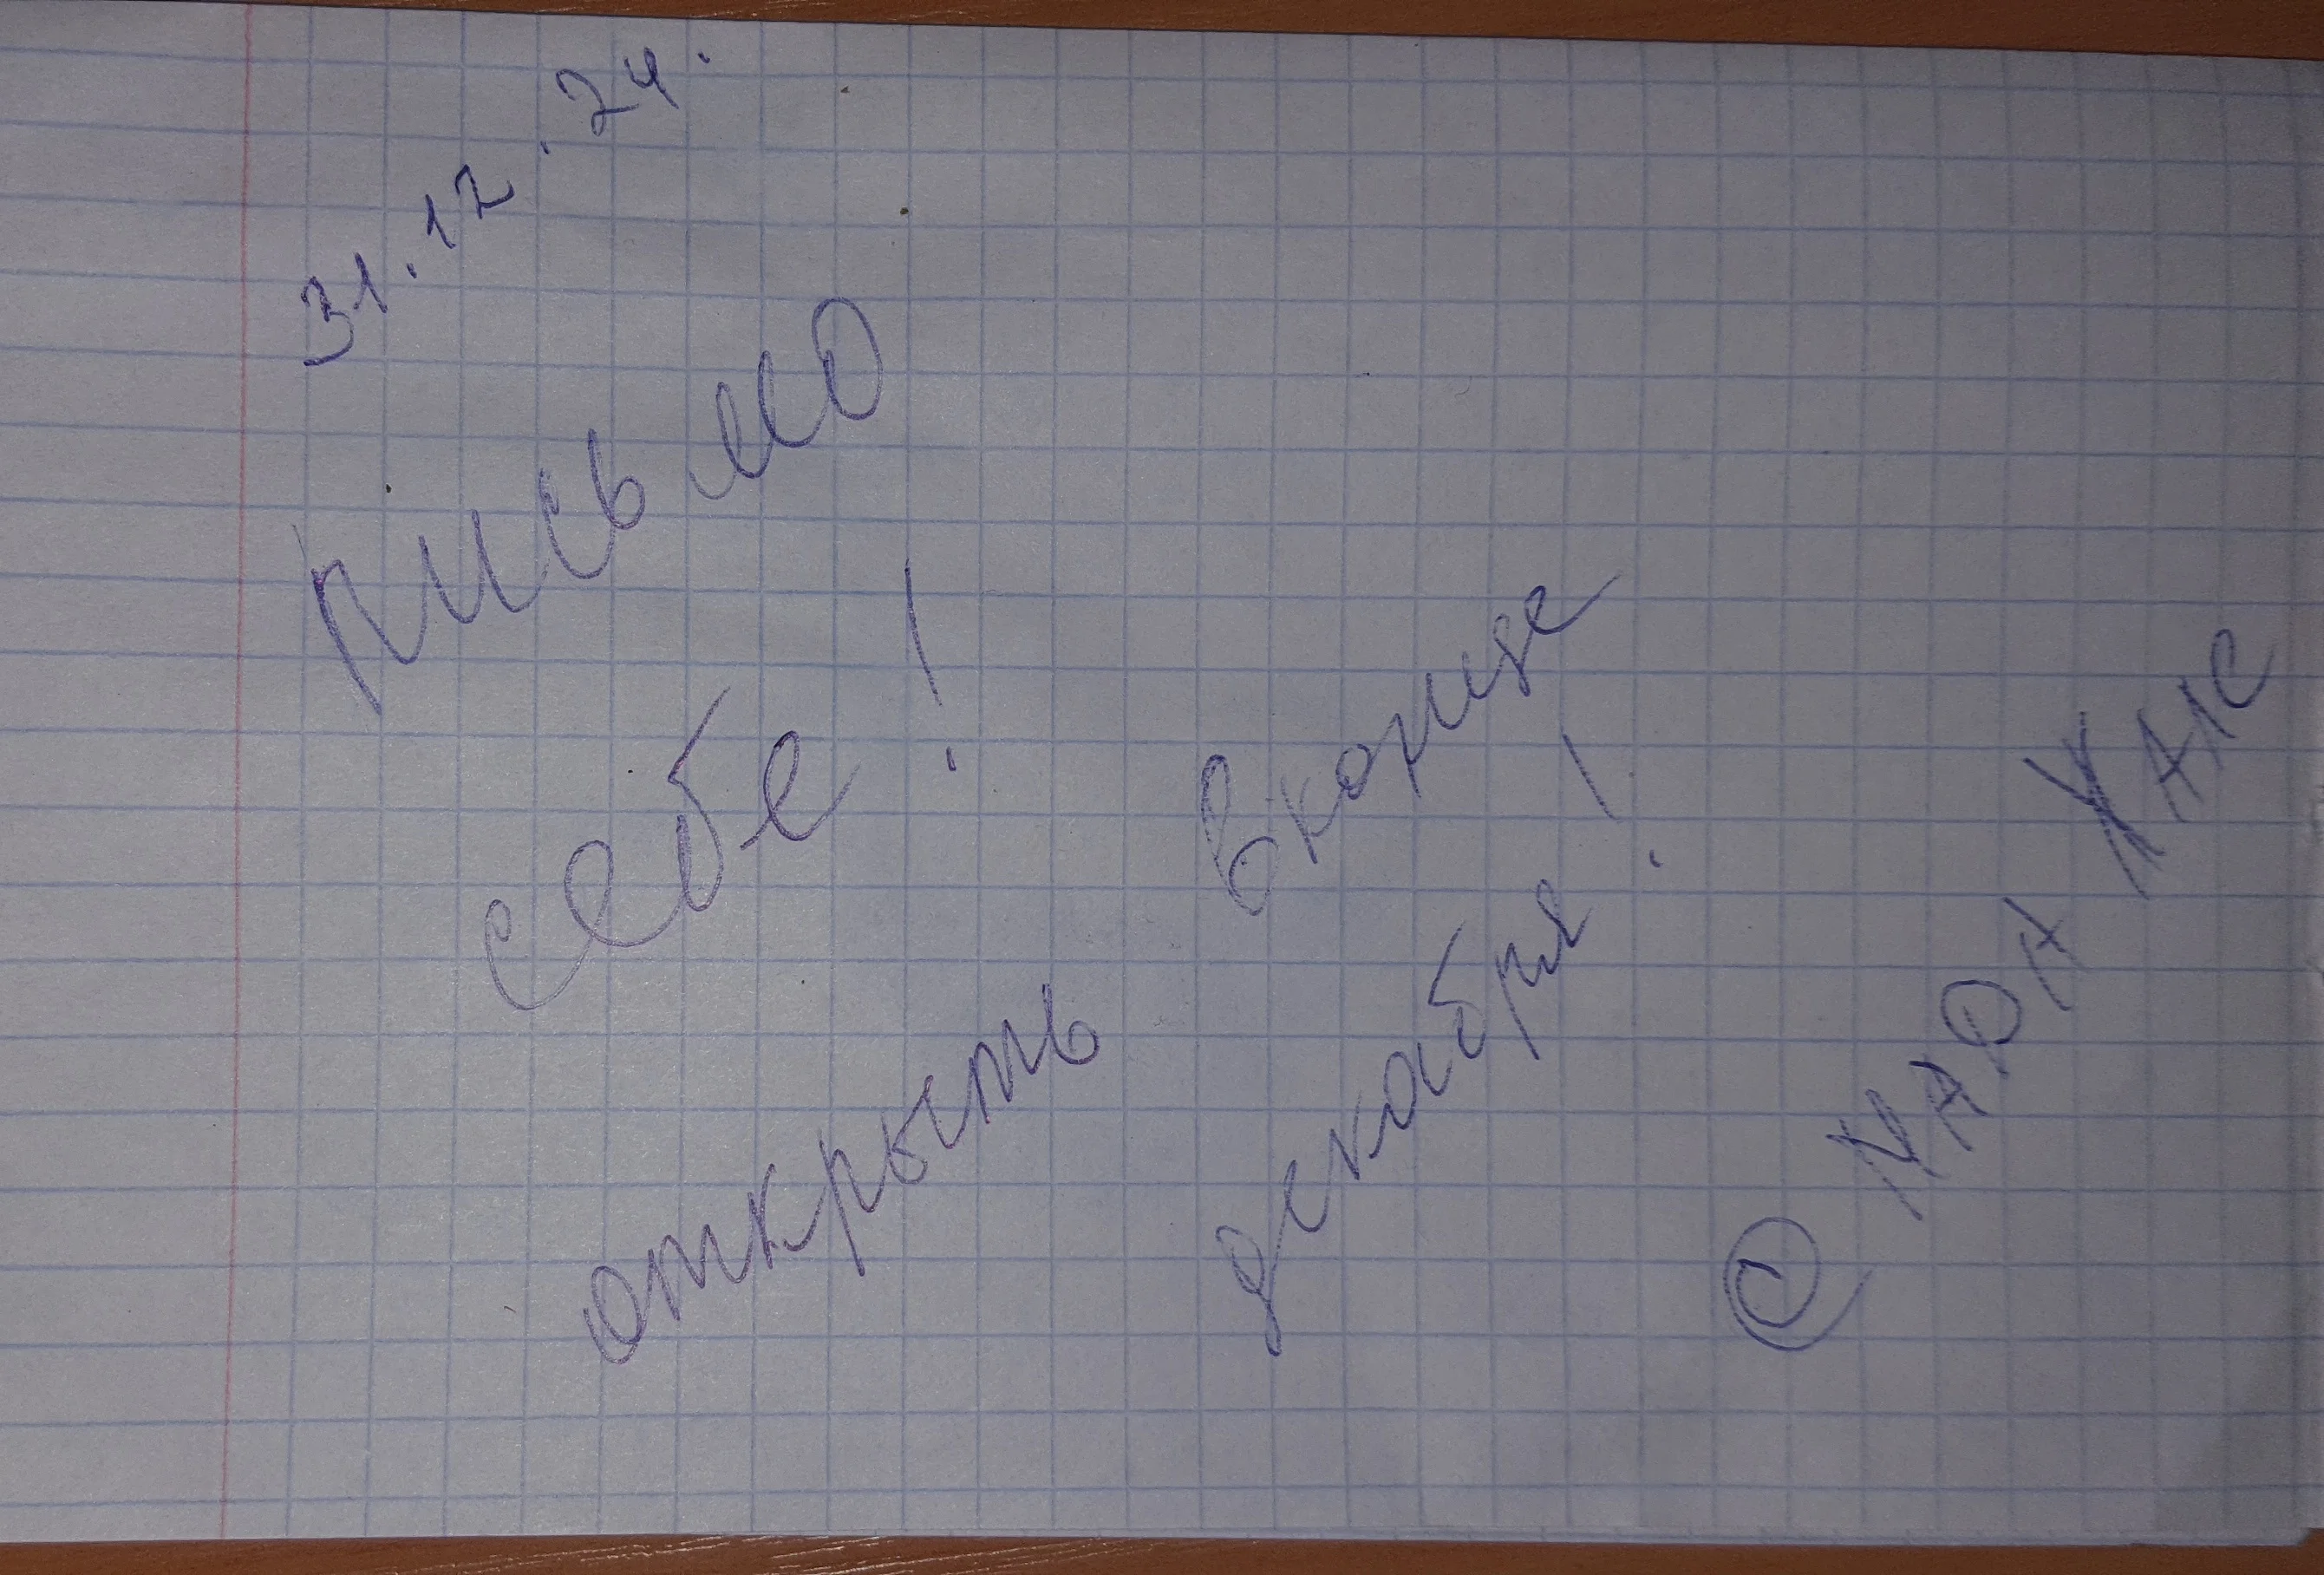 31.12.24.
письмо
себе!
открыть в конце
декабря!